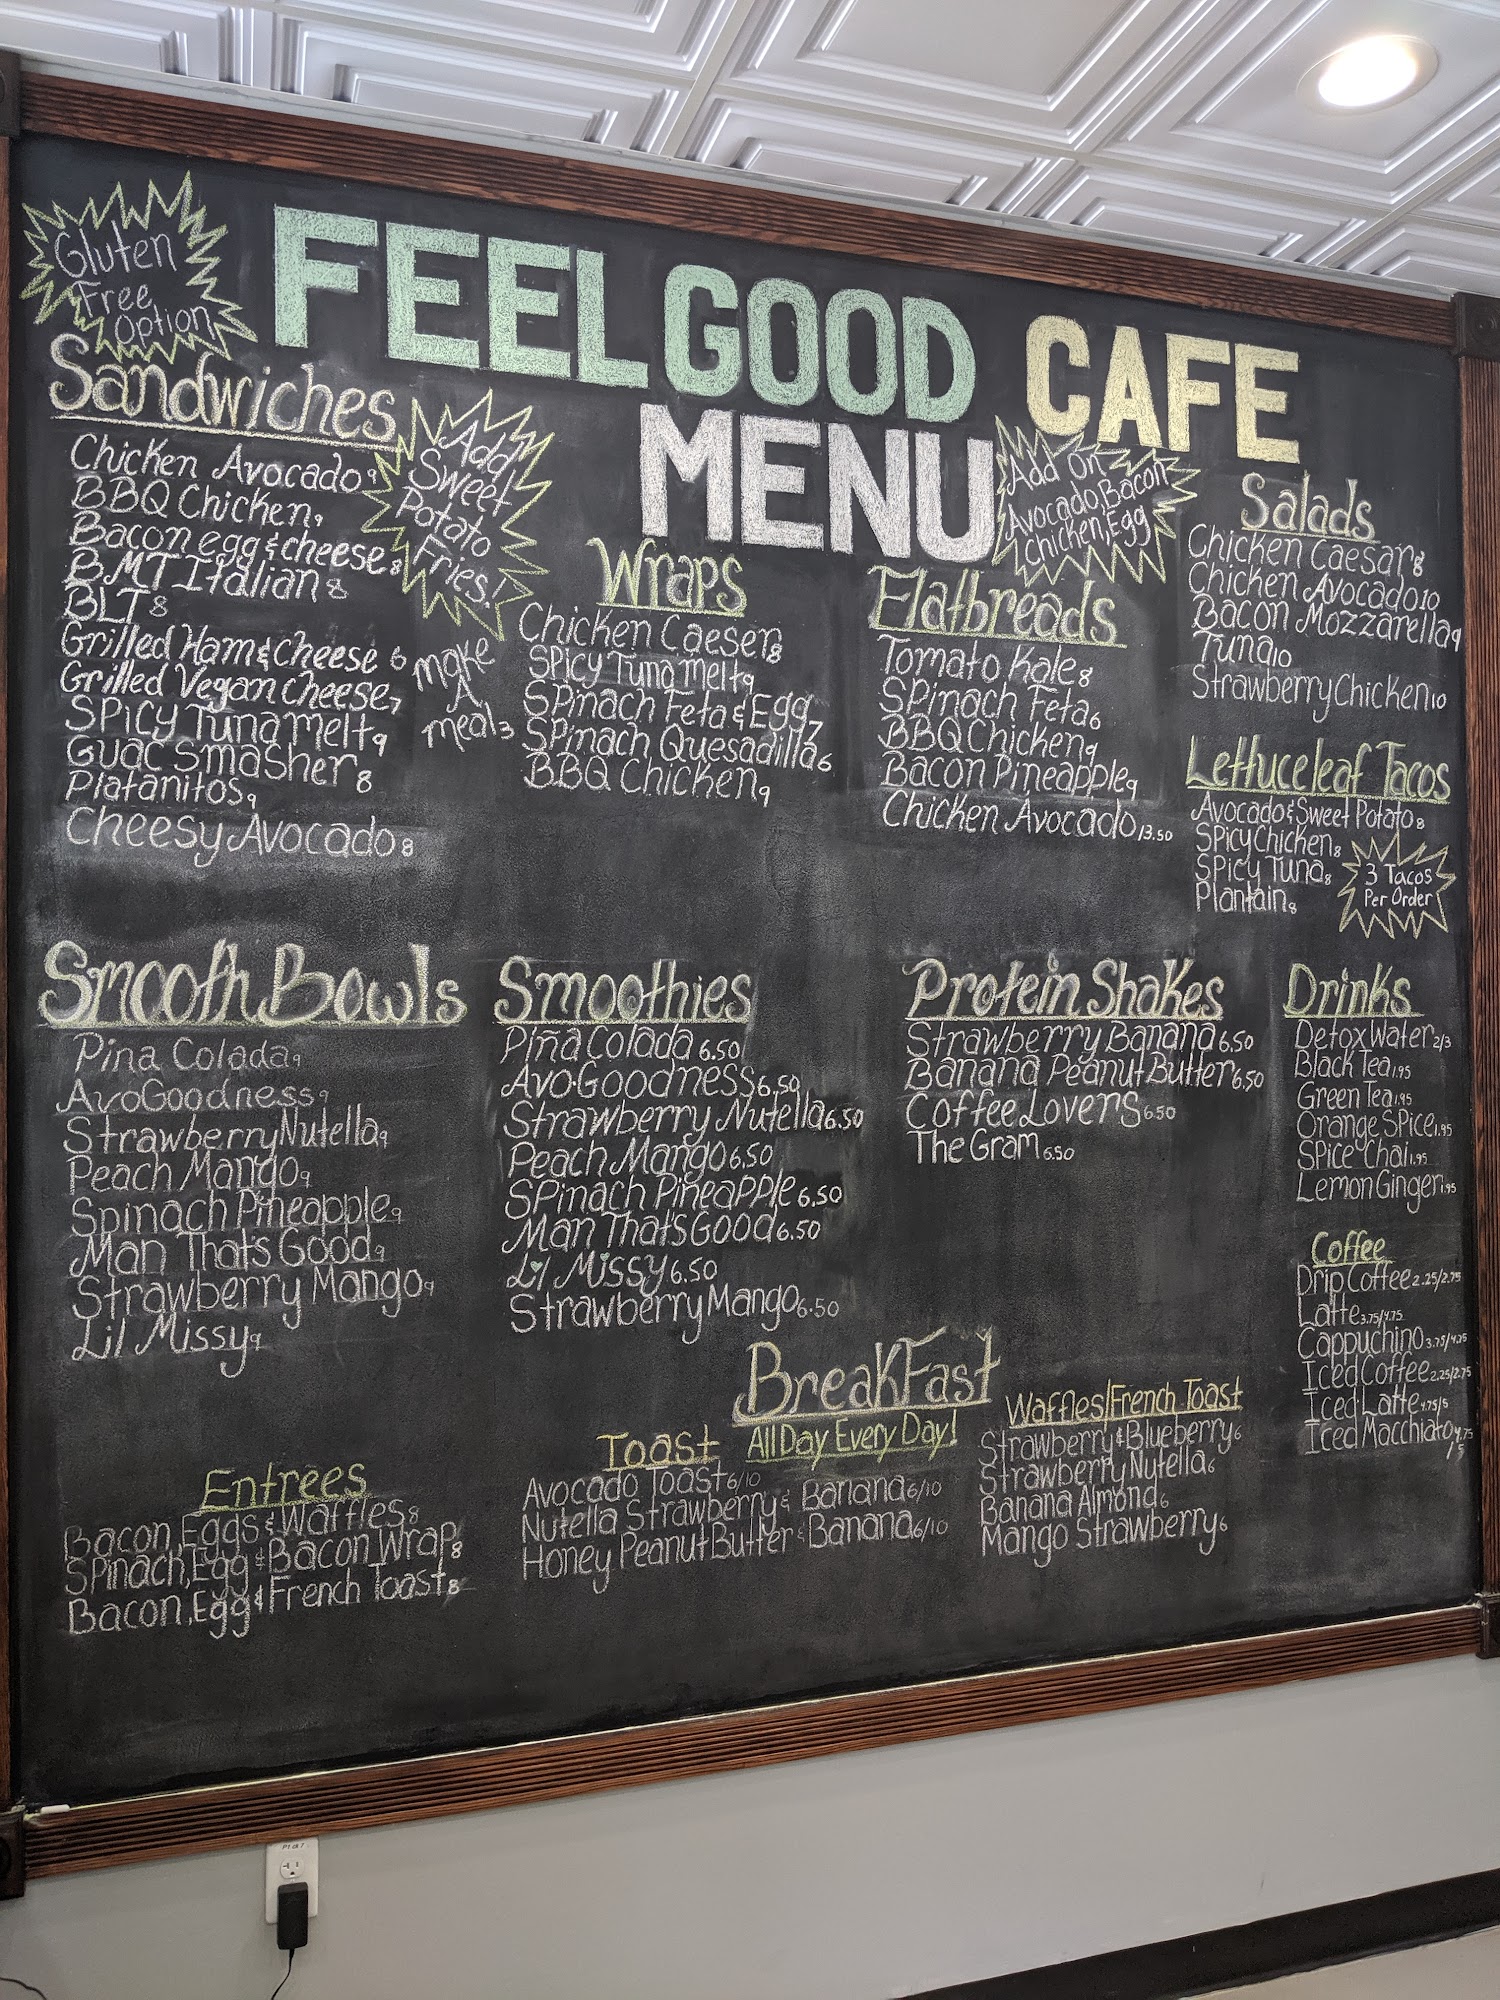 Gluten
Free
Option
FEEL GOOD CAFE
MENU
Sandwiches
Chicken Avocado 9
BBQ Chicken 9
Bacon egg & cheese 8
BMT Italian 8
BLT 8
Grilled Ham & cheese 6
Grilled Vegan cheese 7
Spicy Tuna melt 9
Guac Smasher 8
Platanitos 9
Cheesy Avocado 8
Add
Sweet
Potato
Fries!
make
A
meal 3
Wraps
Chicken Caeser 8
Spicy Tuna Melt 9
Spinach Feta & Egg 7
Spinach Quesadilla 6
BBQ Chicken 9
Add On
Avocado, Bacon
Chicken, Egg
Flatbreads
Tomato Kale 8
Spinach Feta 6
BBQ Chicken 9
Bacon Pineapple 9
Chicken Avocado 13.50
Salads
Chicken Caesar 8
Chicken Avocado 10
Bacon Mozzarella 9
Tuna 10
Strawberry Chicken 10
Lettuce leaf Tacos
Avocado & Sweet Potato 8
Spicy Chicken 8
Spicy Tuna 8
Plantain 8
3 Tacos
Per Order
Smooth Bowls
Pina Colada 9
AvoGoodness 9
Strawberry Nutella 9
Peach Mango 9
Spinach Pineapple 9
Man That's Good 9
Strawberry Mango 9
Lil Missy 9
Smoothies
Piña Colada 6.50
Avo.Goodness 6.50
Strawberry Nutella 6.50
Peach Mango 6.50
Spinach Pineapple 6.50
Man That's Good 6.50
Lil Missy 6.50
Strawberry Mango 6.50
Protein Shakes
Strawberry Banana 6.50
Banana Peanut Butter 6.50
Coffee Lovers 6.50
The Gram 6.50
Drinks
Detox Water 2/3
Black Tea 1.95
Green Tea 1.95
Orange Spice 1.95
Spice Chai 1.95
Lemon Ginger 1.95
Coffee
Drip Coffee 2.25/2.75
Latte 3.75/4.75
Cappuchino 3.75/4.25
Iced Coffee 2.25/2.75
Iced Latte 4.75/5
Iced Macchiato 4.75
/5
BreakFast
All Day Every Day!
Entrees
Bacon, Eggs & Waffles 8
Spinach, Egg & Bacon Wrap 8
Bacon, Egg & French Toast 8
Toast
Avocado Toast 6/10
Nutella Strawberry & Banana 6/10
Honey Peanut Butter & Banana 6/10
Waffles/French Toast
Strawberry & Blueberry 6
Strawberry Nutella 6
Banana Almond 6
Mango Strawberry 6